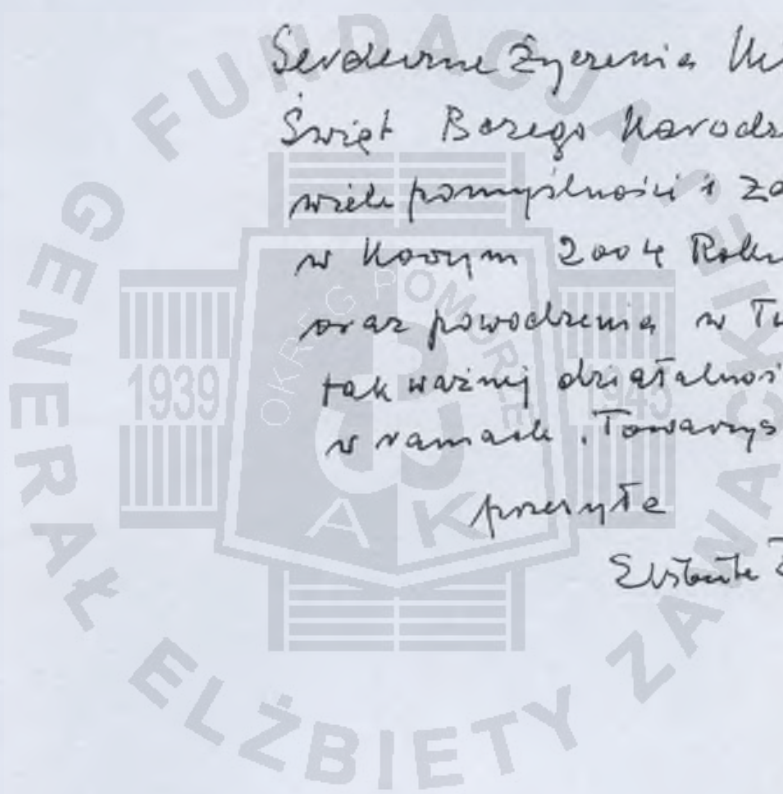 Serdeczne Życzenia
Świąt Bożego Narodz
wiele pomyślności i za
w Nowym 2004 Roku
oraz powodzenia w
tak ważnej działalnoś
w ramach „Towarzys
przesyła
Elżbieta
FUNDACJA
GENERAŁ ELŻBIETY ZAWACKIEJ
OKRĘG POMORZE
1939 1945
AK